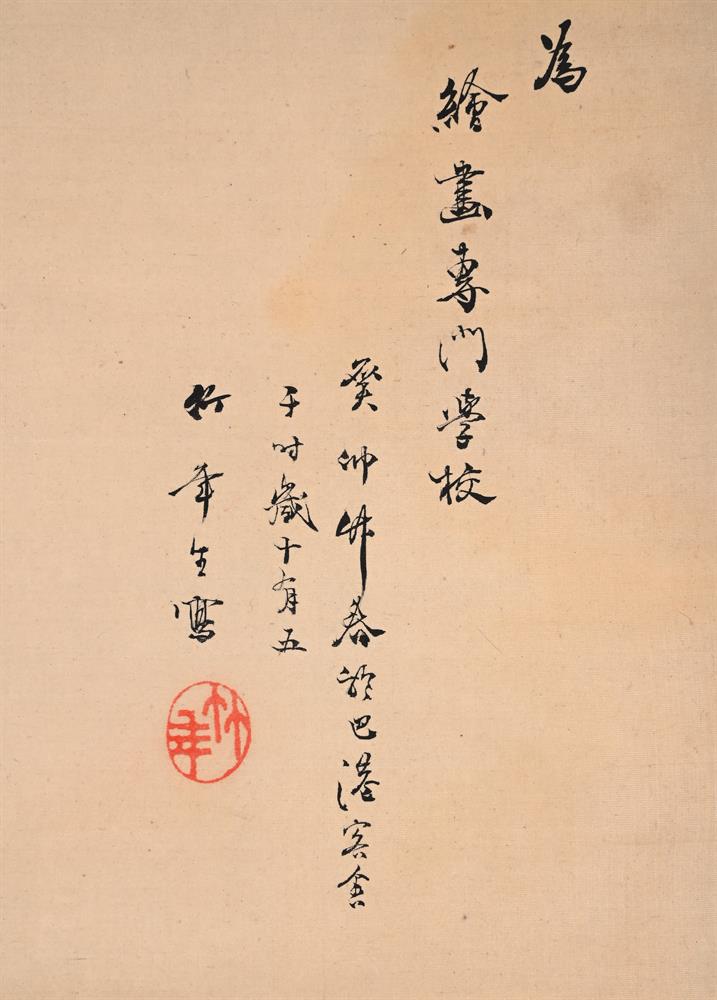 為
繪畫專門學校
癸卯仲春於巴港客舍
于時歲十有五
竹年生寫
竹年